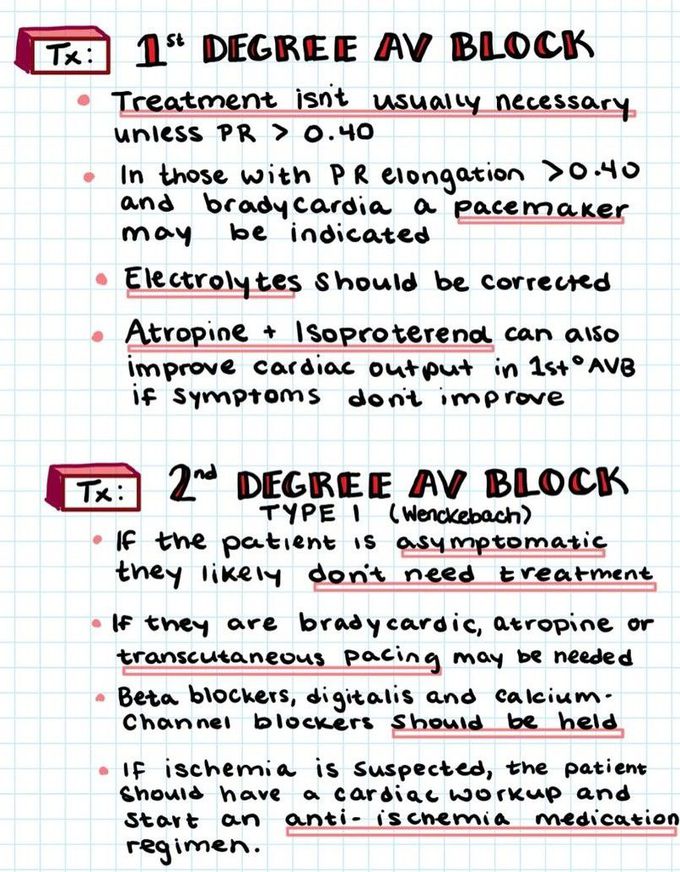 Tx: 1st DEGREE AV BLOCK
• Treatment isn't usually necessary
unless PR > 0.40
• In those with PR elongation >0.40
and bradycardia a pacemaker
may be indicated
• Electrolytes should be corrected
• Atropine + Isoproterenol can also
improve cardiac output in 1st° AVB
if symptoms don't improve
Tx: 2nd DEGREE AV BLOCK
TYPE 1 (Wenckebach)
• If the patient is asymptomatic
they likely don't need treatment
• If they are bradycardic, atropine or
transcutaneous pacing may be needed
• Beta blockers, digitalis and calcium-
Channel blockers should be held
• If ischemia is suspected, the patient
should have a cardiac workup and
start an anti-ischemia medication
regimen.